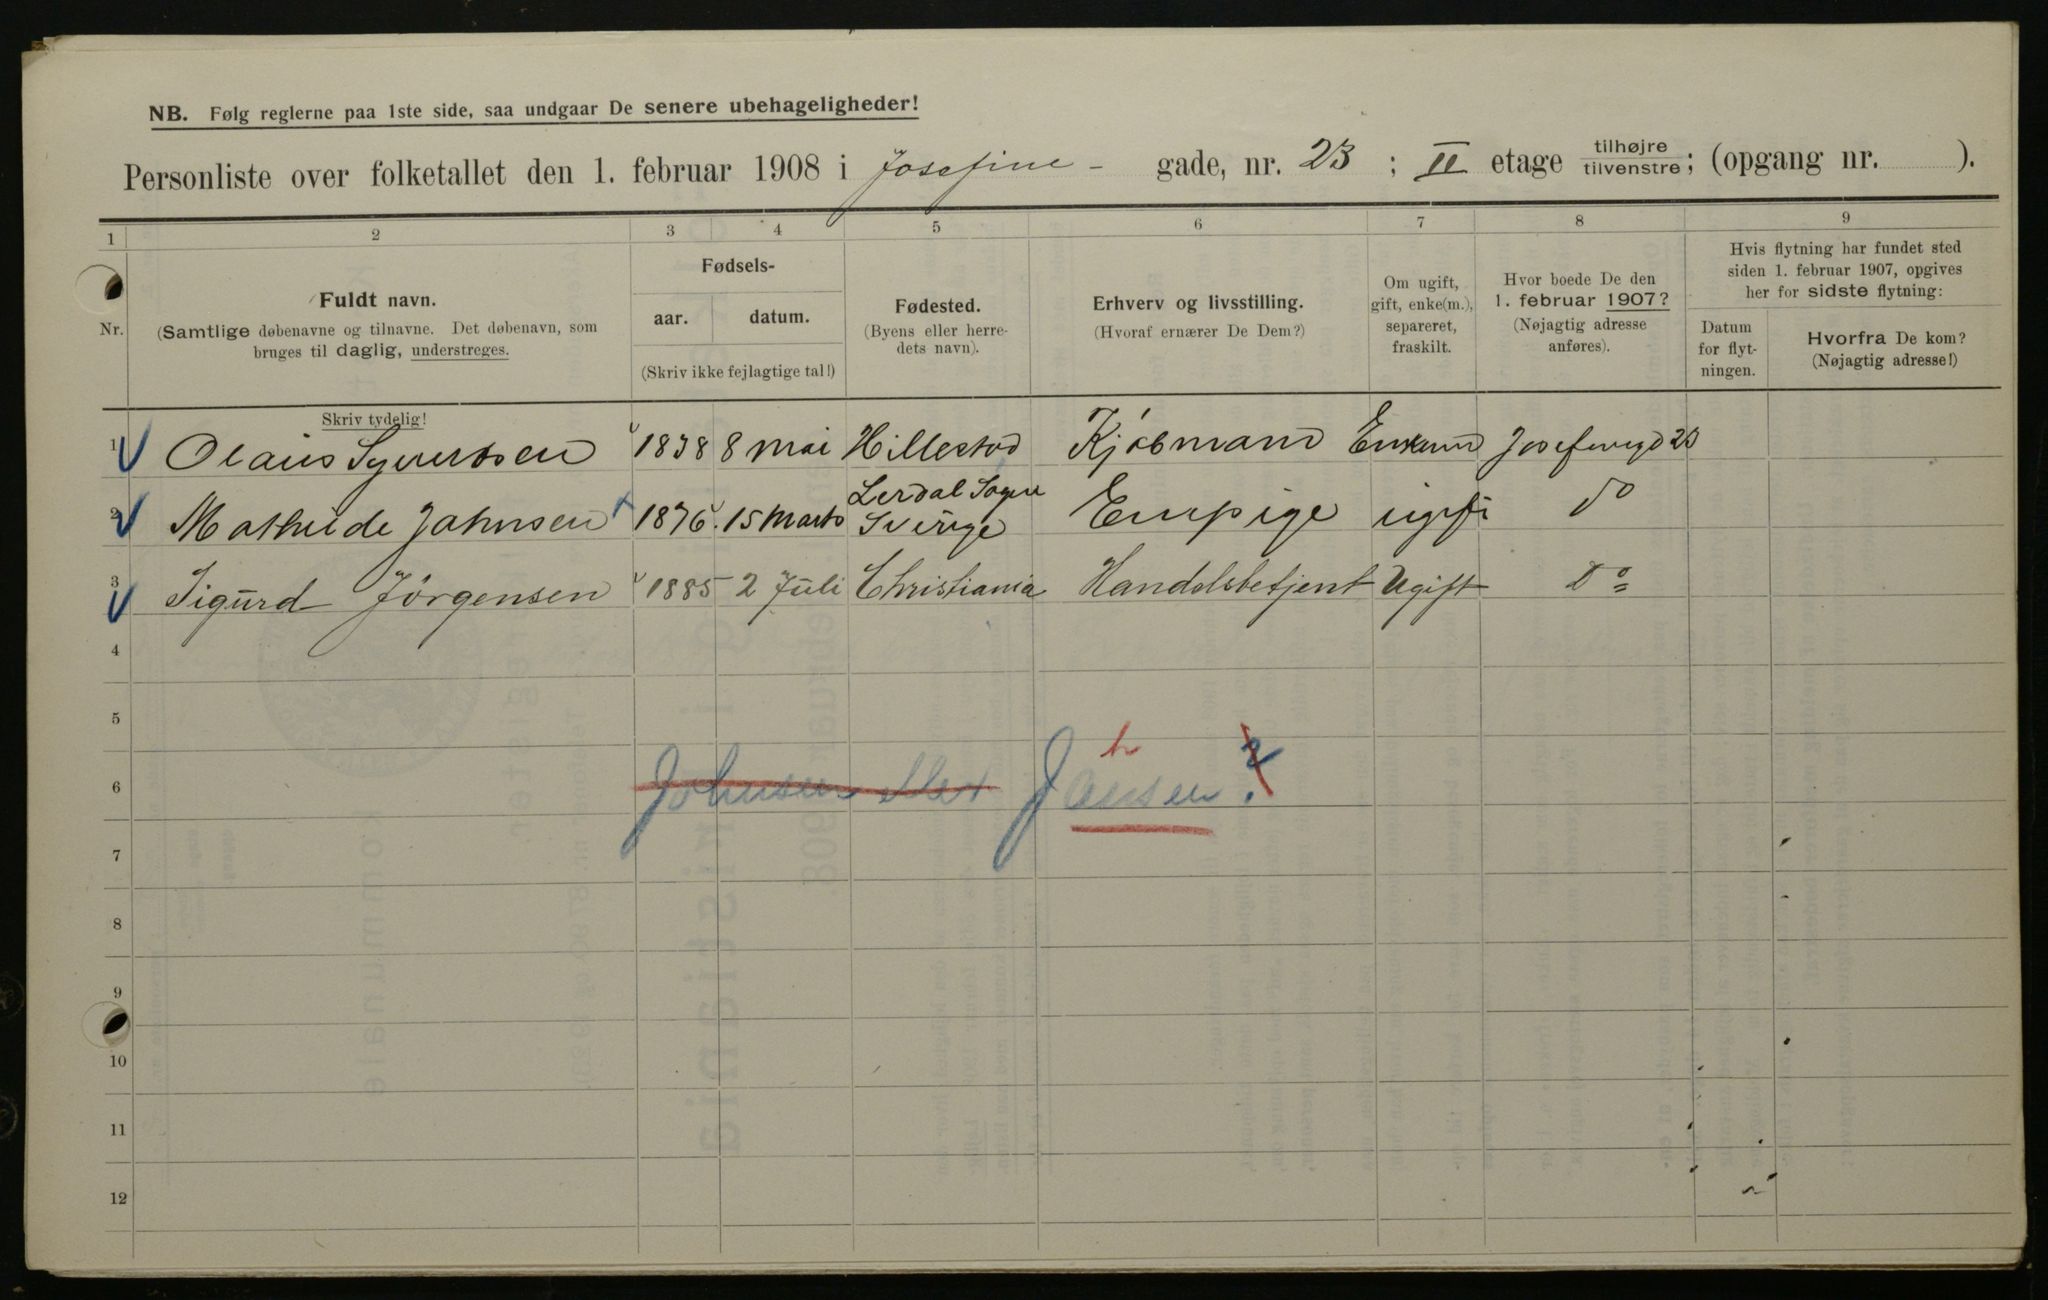 NB. Følg reglerne paa 1ste side, saa undgaar De senere ubehageligheder!
Personliste over folketallet den 1. februar 1908 i Josefine - gade, nr. 23 ; II etage tilhøjre tilvenstre; (opgang nr. ).
1 2 3 4 5 6 7 8 9
Nr.
Fuldt navn.
(Samtlige døbenavne og tilnavne. Det døbenavn, som
bruges til daglig, understreges.
Skriv tydelig!
Fødsels-
aar. datum.
(Skriv ikke fejlagtige tal!)
Fødested.
(Byens eller herre-
dets navn).
Erhverv og livsstilling.
(Hvoraf ernærer De Dem?)
Om ugift,
gift, enke(m.),
separeret,
fraskilt.
Hvor boede De den
1. februar 1907?
(Nøjagtig adresse
anføres).
Hvis flytning har fundet sted
siden 1. februar 1907, opgives
her for sidste flytning:
Datum
for flyt-
ningen.
Hvorfra De kom?
(Nøjagtig adresse!)
1 Olaus 1838 8 Mai Hillestad Kjöbmand Josefinegd 23
2 Mathilde Johnsen 1876 15 Marts Lerdal Sogn Sverige ugift do
3 Sigurd Jörgensen 1885 2 Juli Christiania Handelsbetjent Ugift Do
4
5
6 Johnsen eller Jansen?
h
7
8
9
10
11
12